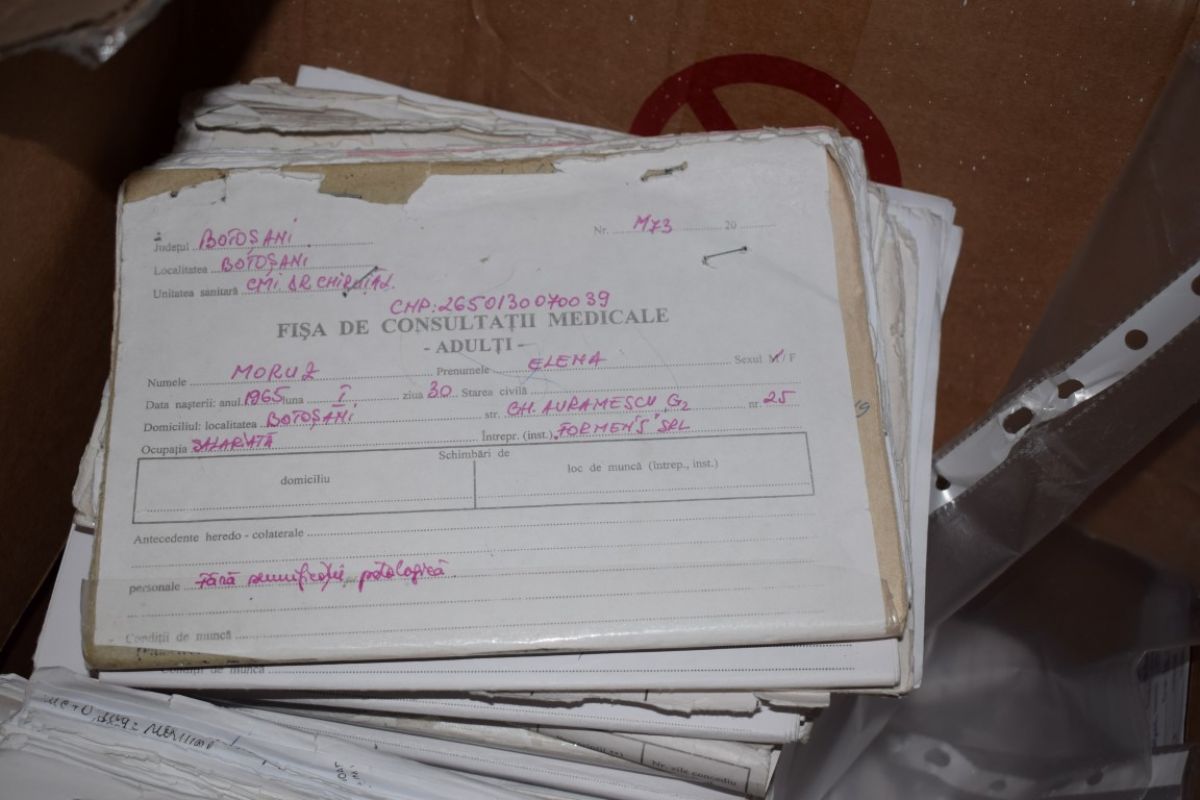 Județul BOTOȘANI
Nr. M73 20
Localitatea BOTOȘANI
Unitatea sanitară CMI DR CHIRIȚĂ
CNP: 2650130070039
FIȘA DE CONSULTAȚII MEDICALE
- ADULȚI -
Numele MORUZ Prenumele ELENA Sexul M / F
Data nașterii: anul 1965 luna I ziua 30 Starea civilă
Domiciliul: localitatea BOTOȘANI str. GH. AVRAMESCU G2 nr. 25
Ocupația SALARIATĂ Întrepr. (inst.) FORMEN'S SRL
Schimbări de
domiciliu loc de muncă (întrep., inst.)
Antecedente heredo - colaterale
personale Fără semnificație patologică
Condiții de muncă
Condiții de muncă
19
Nr. zile concediu